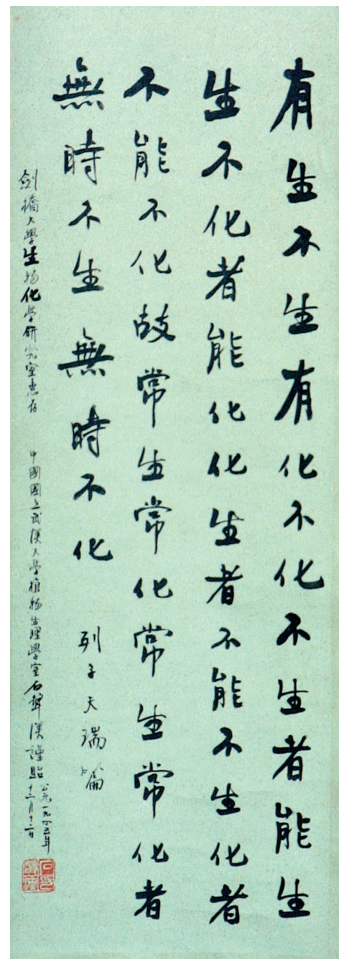 有生不生有化不化不生者能生
生不化者能化化生者不能不生化者
不能不化故常生常化常生常化者
無時不生無時不化
列子天瑞篇
劍橋大學生物化學研究室惠存
中國國立武漢大學植物生理學室石聲漢謹貽
公元一九四五年